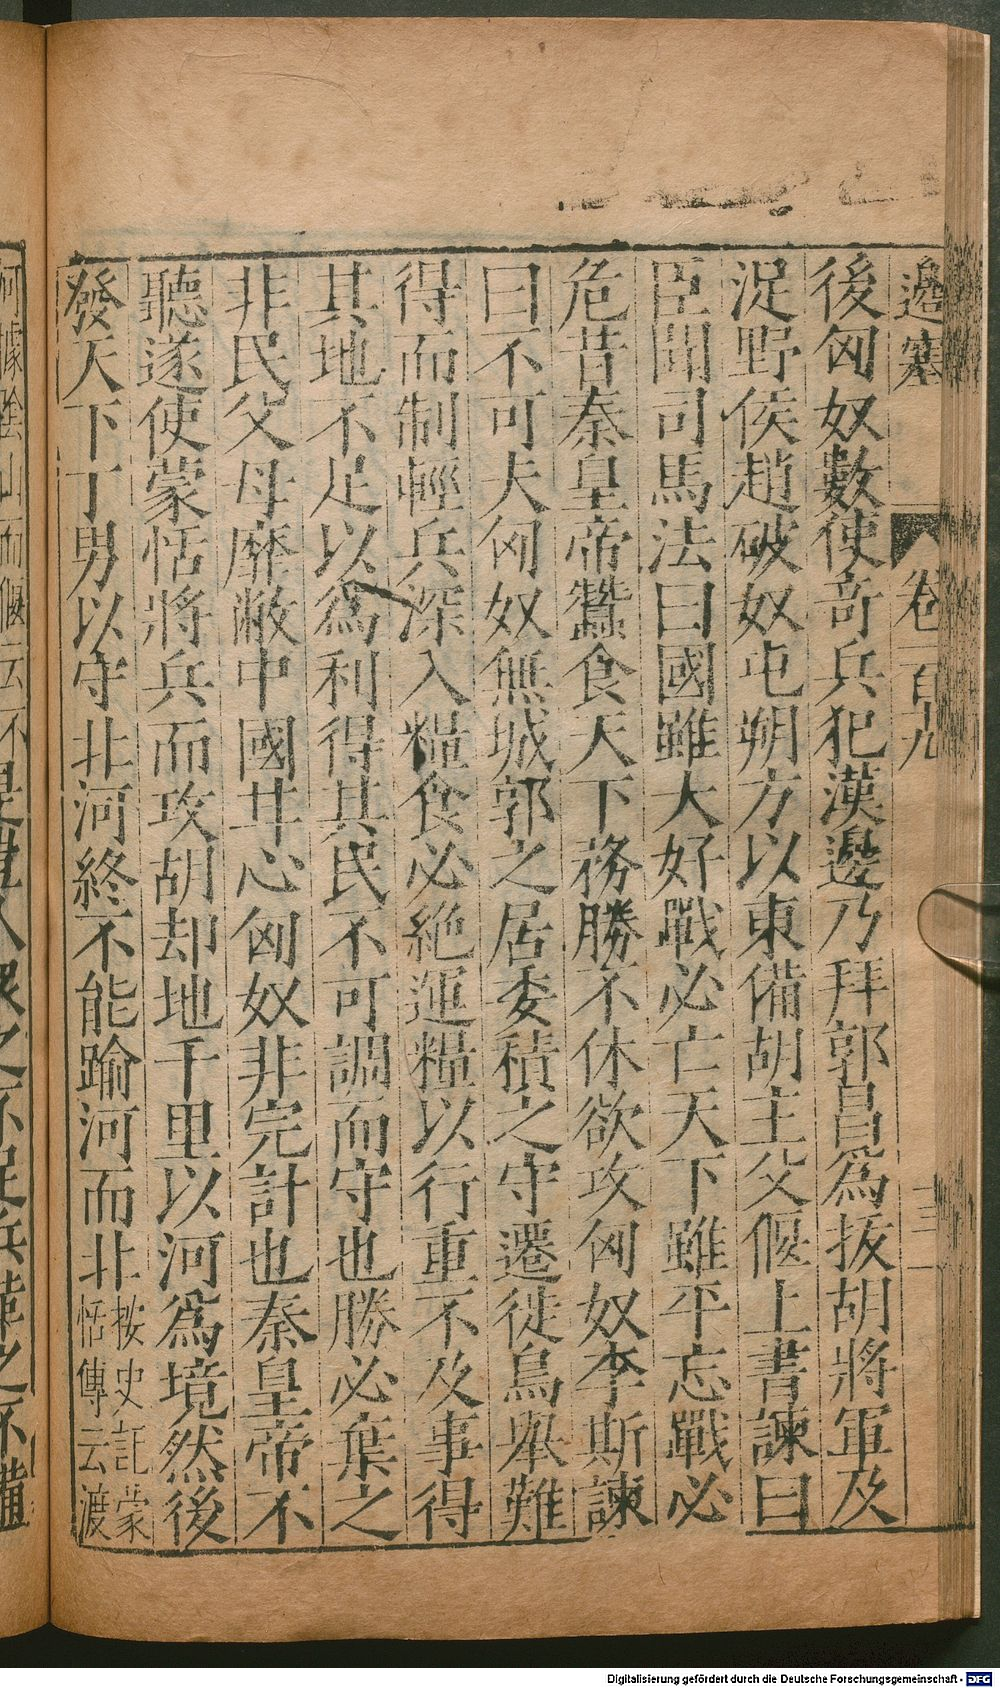 邊塞 卷一百九 三
後匈奴數使奇兵犯漢邊乃拜郭昌爲拔胡將軍及
浞野侯趙破奴屯朔方以東備胡主父偃上書諫曰
臣聞司馬法曰國雖大好戰必亡天下雖平忘戰必
危昔秦皇帝蠶食天下務勝不休欲攻匈奴李斯諫
曰不可夫匈奴無城郭之居委積之守遷徙鳥舉難
得而制輕兵深入糧食必絕運糧以行重不及事得
其地不足以爲利得其民不可調而守也勝必棄之
非民父母靡敝中國甘心匈奴非完計也秦皇帝不
聽遂使蒙恬將兵而攻胡却地千里以河爲境然後
發天下丁男以守北河終不能踰河而北
按史記蒙
恬傳云渡
河據陰山而偃云不是豈人衆之不足兵革之不備
Digitalisierung gefördert durch die Deutsche Forschungsgemeinschaft - DFG